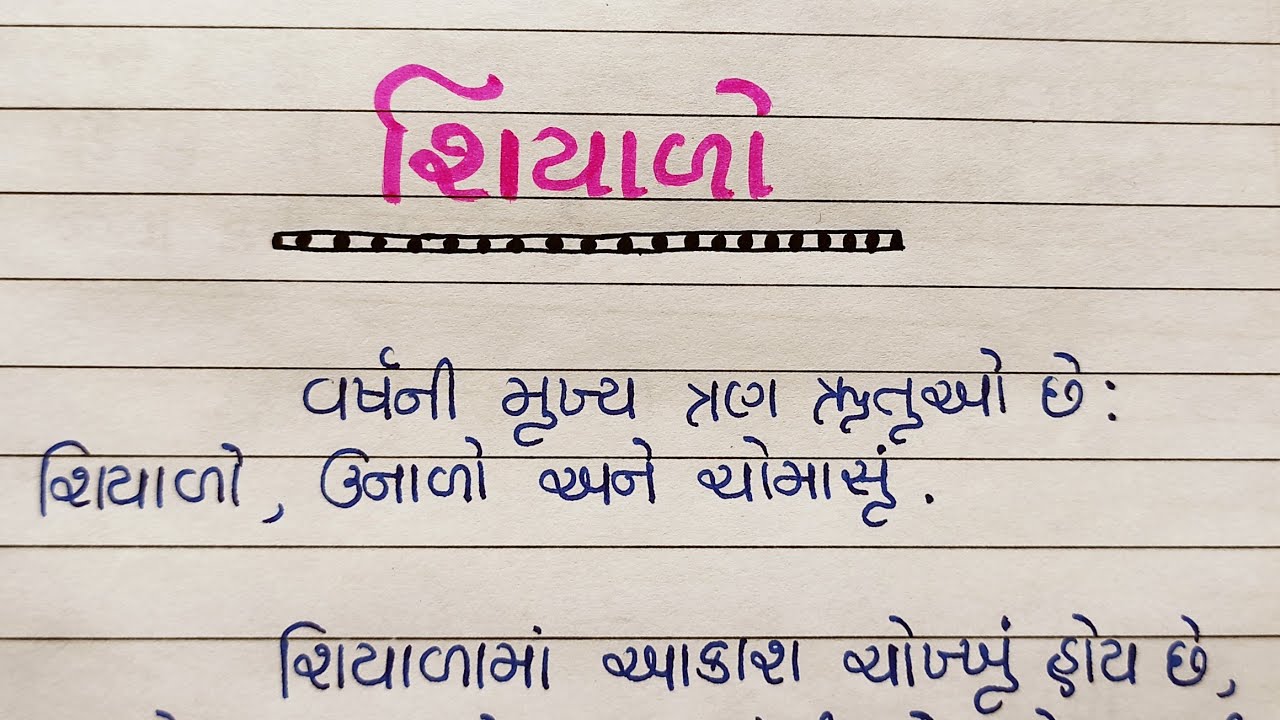 શિયાળો
વર્ષની મુખ્ય ત્રણ ઋતુઓ છે:
શિયાળો, ઉનાળો અને ચોમાસું.
શિયાળામાં આકાશ ચોખ્ખું હોય છે,